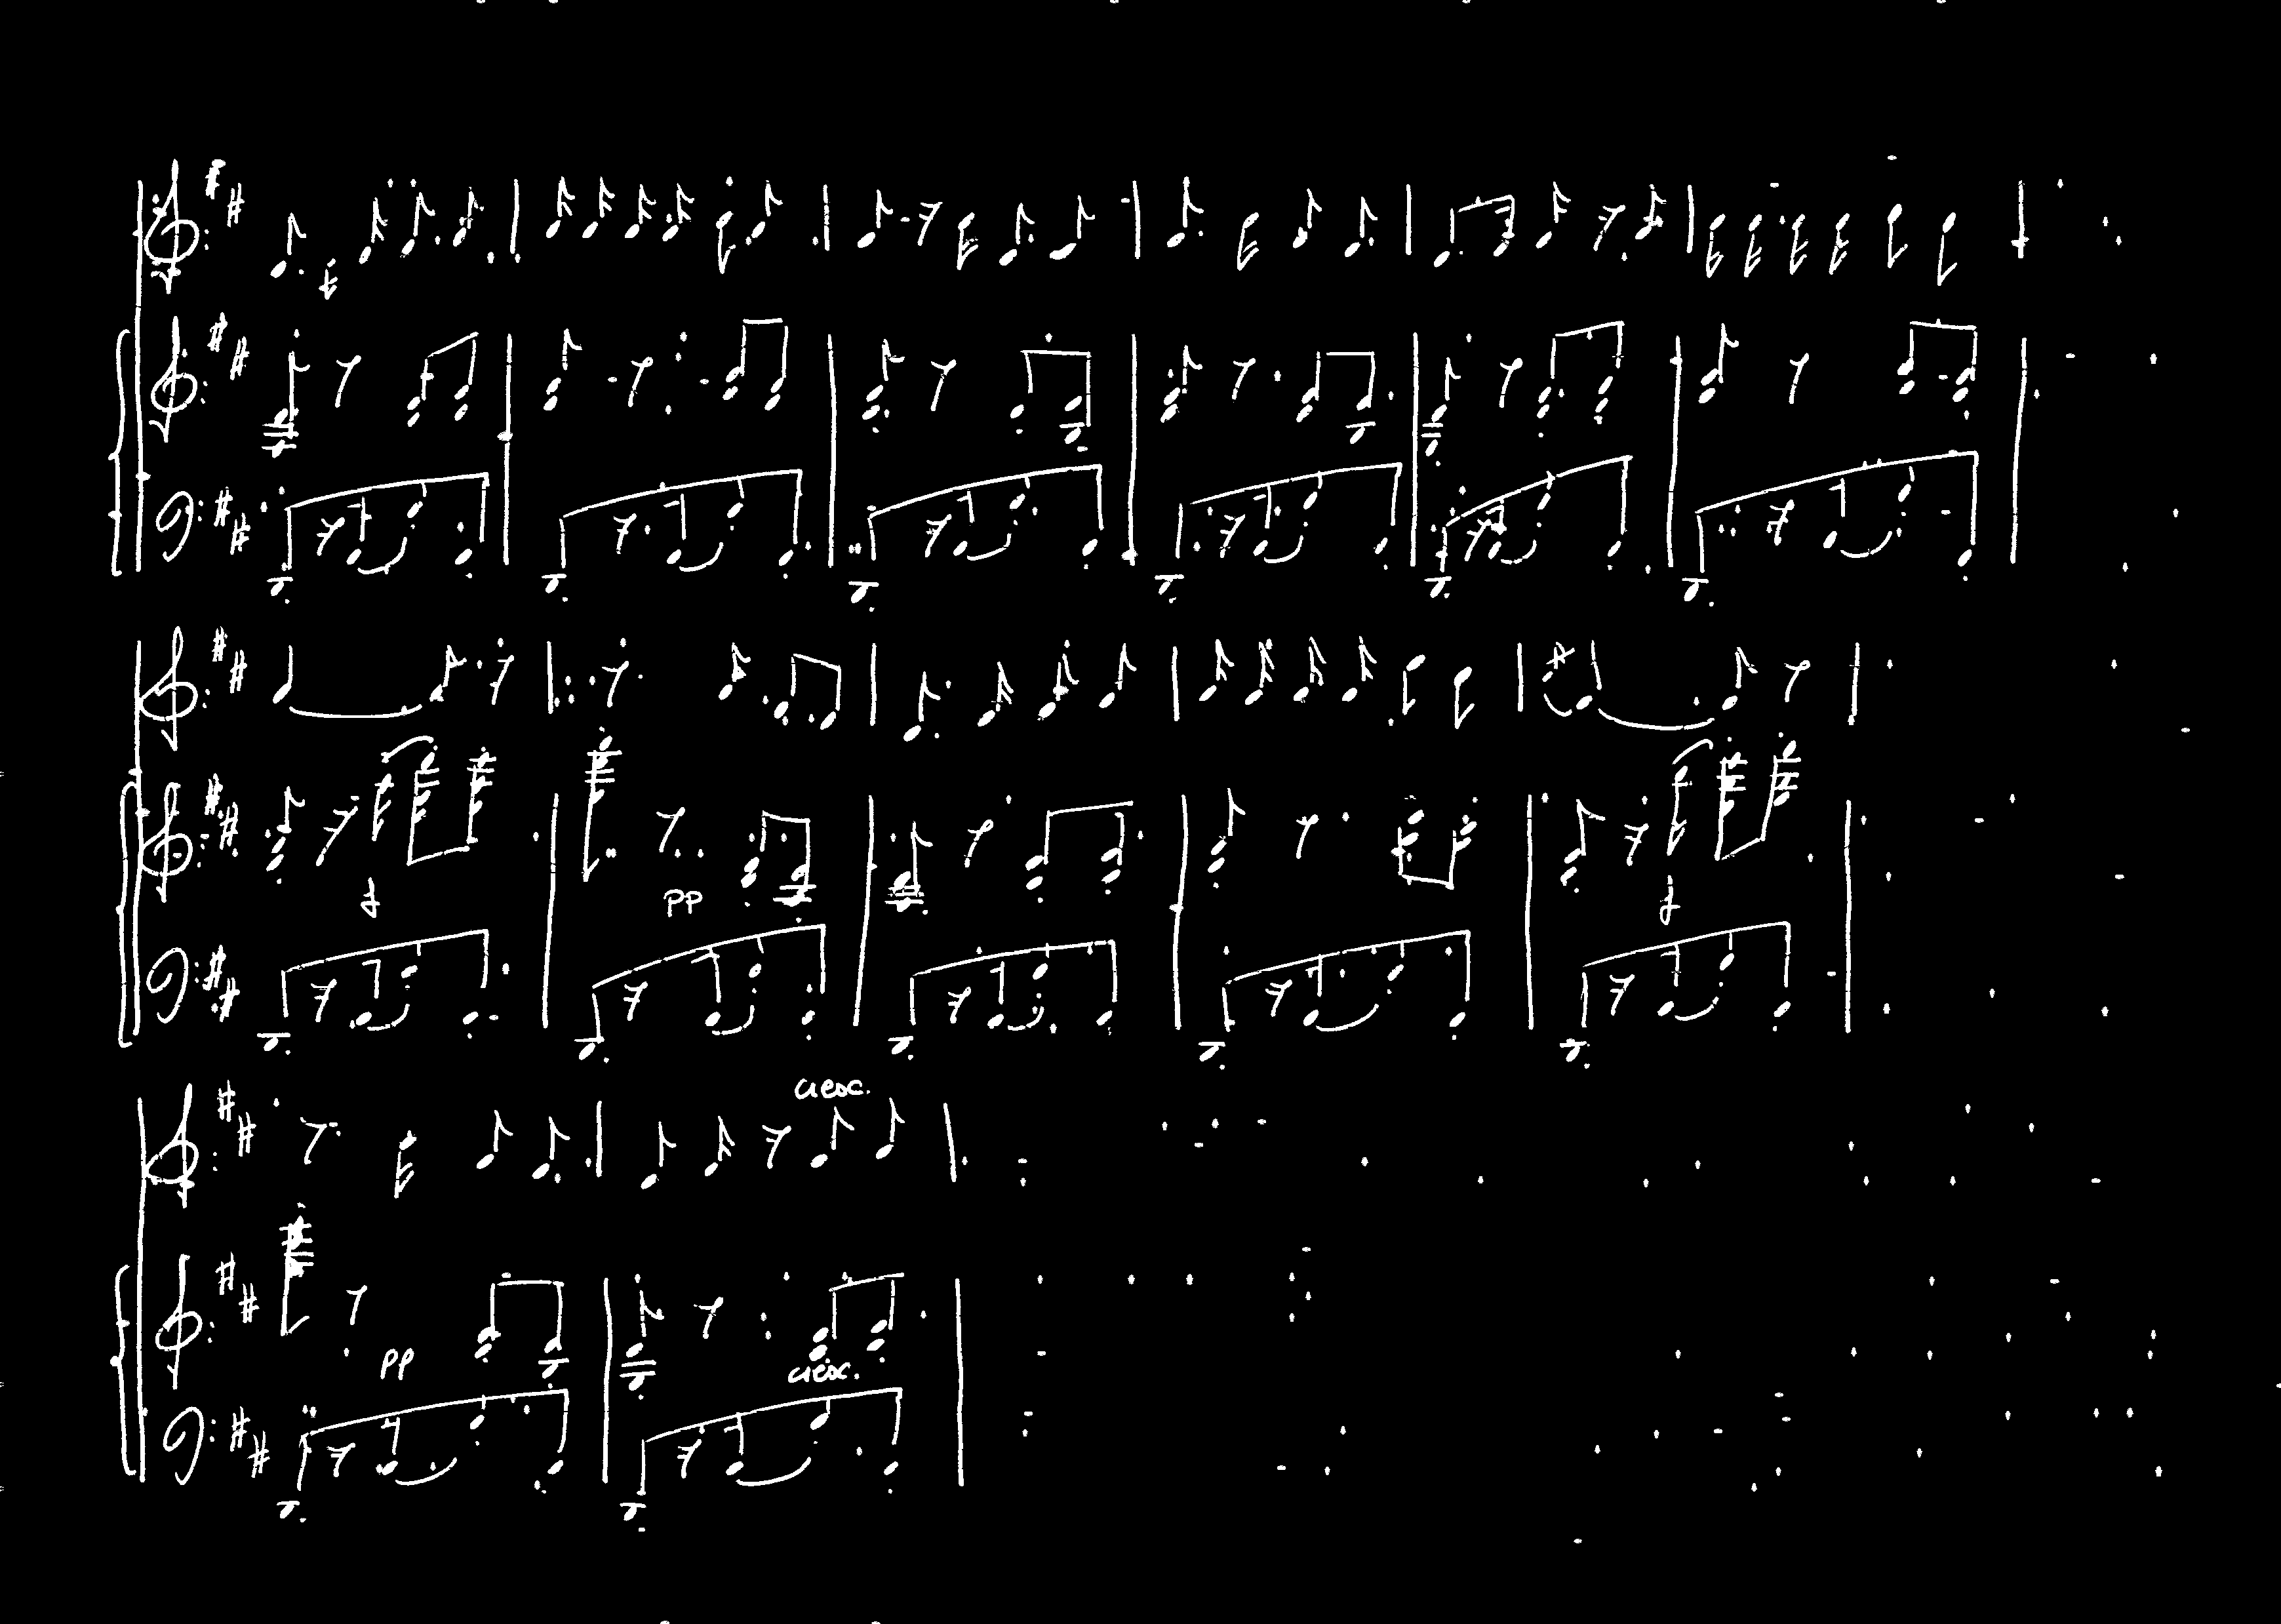 f
pp
f
cresc.
pp
cresc.